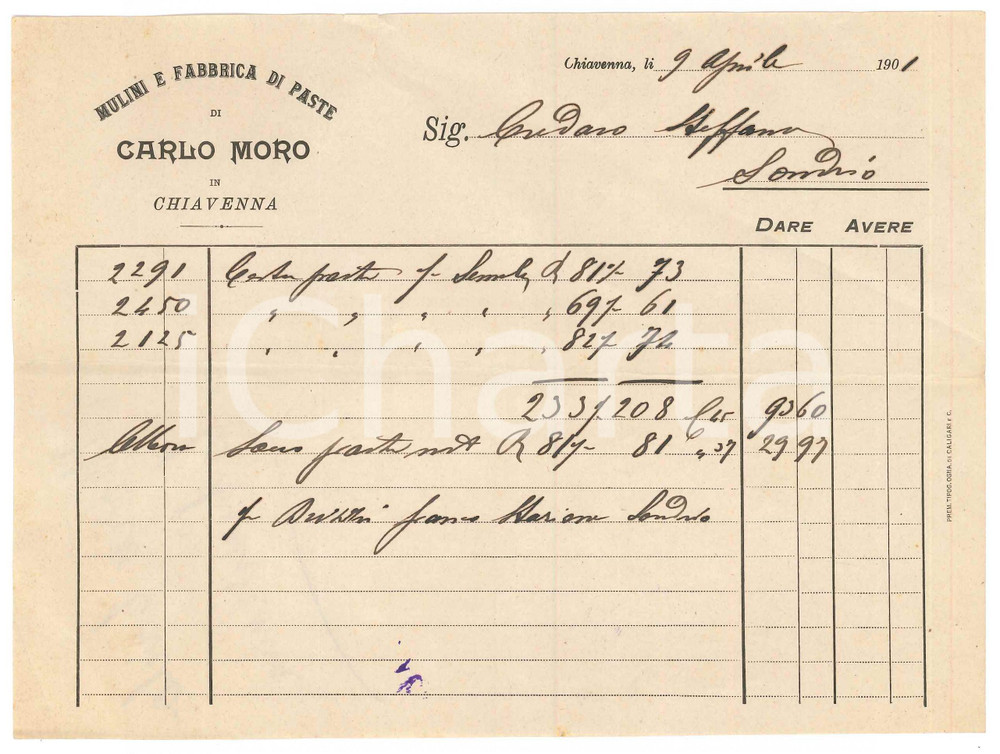 MULINI E FABBRICA DI PASTE
DI
CARLO MORO
IN
CHIAVENNA
Chiavenna, li 9 Aprile 1901
Sig. Credaro Steffano
Sondrio
DARE AVERE
2291 Cesta paste f Semola L 81 73
2450 " " " " " 69 61
2125 " " " " " 82 74
233 208 C 45 9360
paste R 81 81 " 37 2997
franco Stazione Sondrio
PREM. TIPOG. OGNA, DI CALIGARI & C.
iCharta